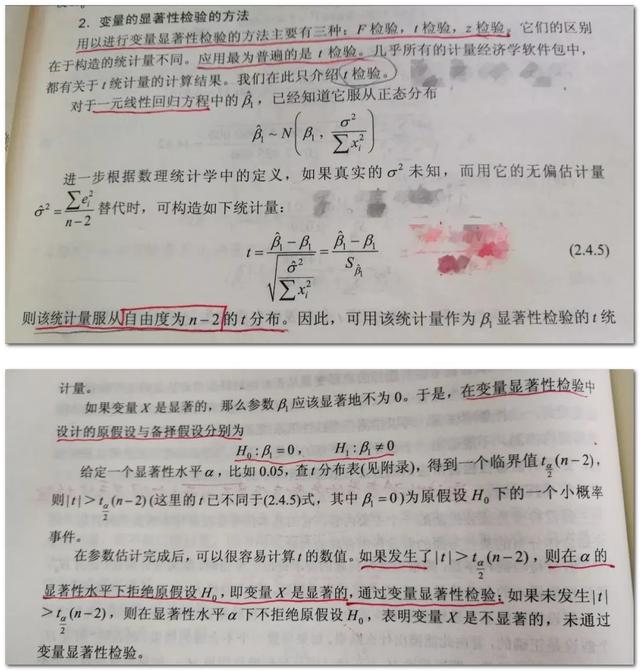 2. 变量的显著性检验的方法
用以进行变量显著性检验的方法主要有三种：F 检验，t 检验，z 检验。它们的区别
在于构造的统计量不同。应用最为普遍的是 t 检验。几乎所有的计量经济学软件包中，
都有关于 t 统计量的计算结果。我们在此只介绍 t 检验。
对于一元线性回归方程中的 β̂₁，已经知道它服从正态分布
β̂₁ ~ N(β₁, σ²/∑xᵢ²)
进一步根据数理统计学中的定义，如果真实的 σ² 未知，而用它的无偏估计量
σ̂² = ∑eᵢ²/(n−2) 替代时，可构造如下统计量：
t = (β̂₁ − β₁)/√(σ̂²/∑xᵢ²) = (β̂₁ − β₁)/S_β̂₁ (2.4.5)
则该统计量服从自由度为 n−2 的 t 分布。因此，可用该统计量作为 β₁ 显著性检验的 t 统
计量。
如果变量 X 是显著的，那么参数 β₁ 应该显著地不为 0。于是，在变量显著性检验中
设计的原假设与备择假设分别为
H₀：β₁ = 0， H₁：β₁ ≠ 0
给定一个显著性水平 α，比如 0.05，查 t 分布表(见附录)，得到一个临界值 t_{α/2}(n−2)，
则|t| > t_{α/2}(n−2)(这里的 t 已不同于(2.4.5)式，其中 β₁ = 0)为原假设 H₀ 下的一个小概率
事件。
在参数估计完成后，可以很容易计算 t 的数值。如果发生了|t| > t_{α/2}(n−2)，则在 α 的
显著性水平下拒绝原假设 H₀，即变量 X 是显著的，通过变量显著性检验；如果未发生|t|
> t_{α/2}(n−2)，则在显著性水平 α 下不拒绝原假设 H₀，表明变量 X 是不显著的，未通过
变量显著性检验。